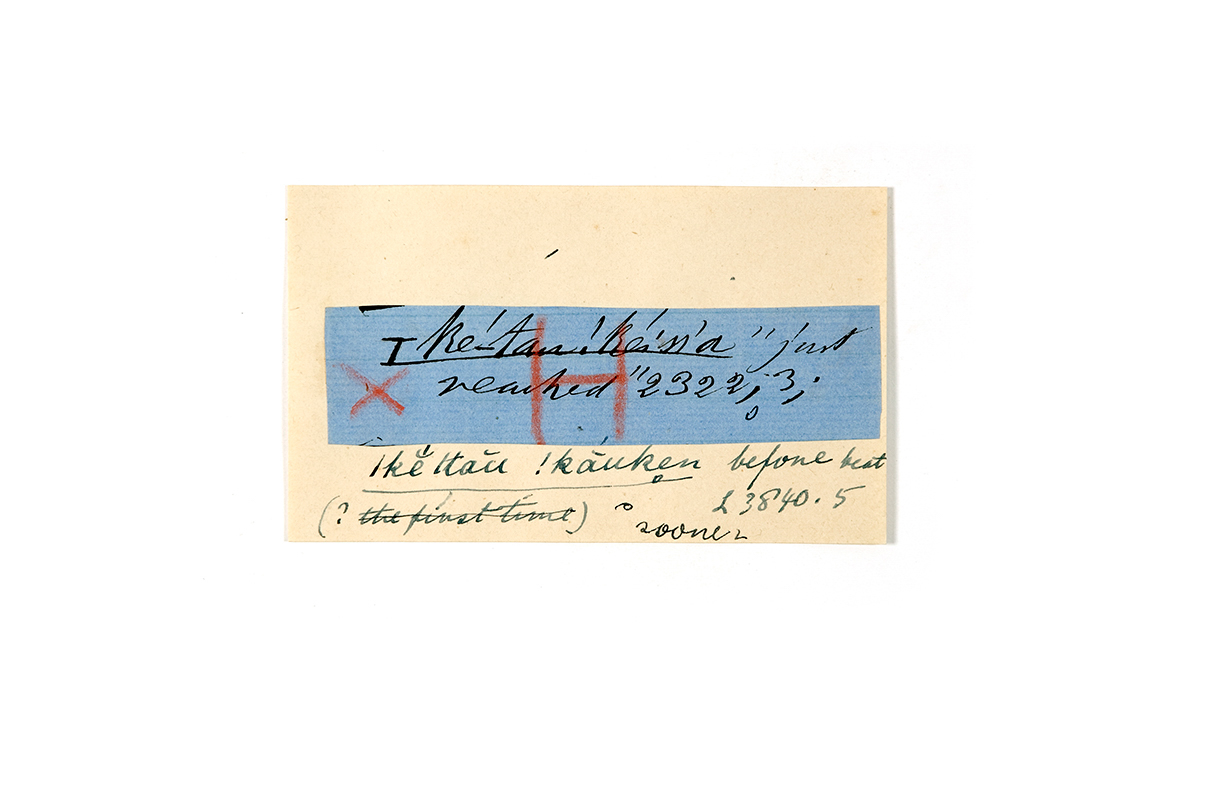 I ké-tau !kéïsi'a " just
reached " 2322, 3;
X H
ǀkĕ ttău !kăuken before beat
(? the first time) sooner L 3840.5